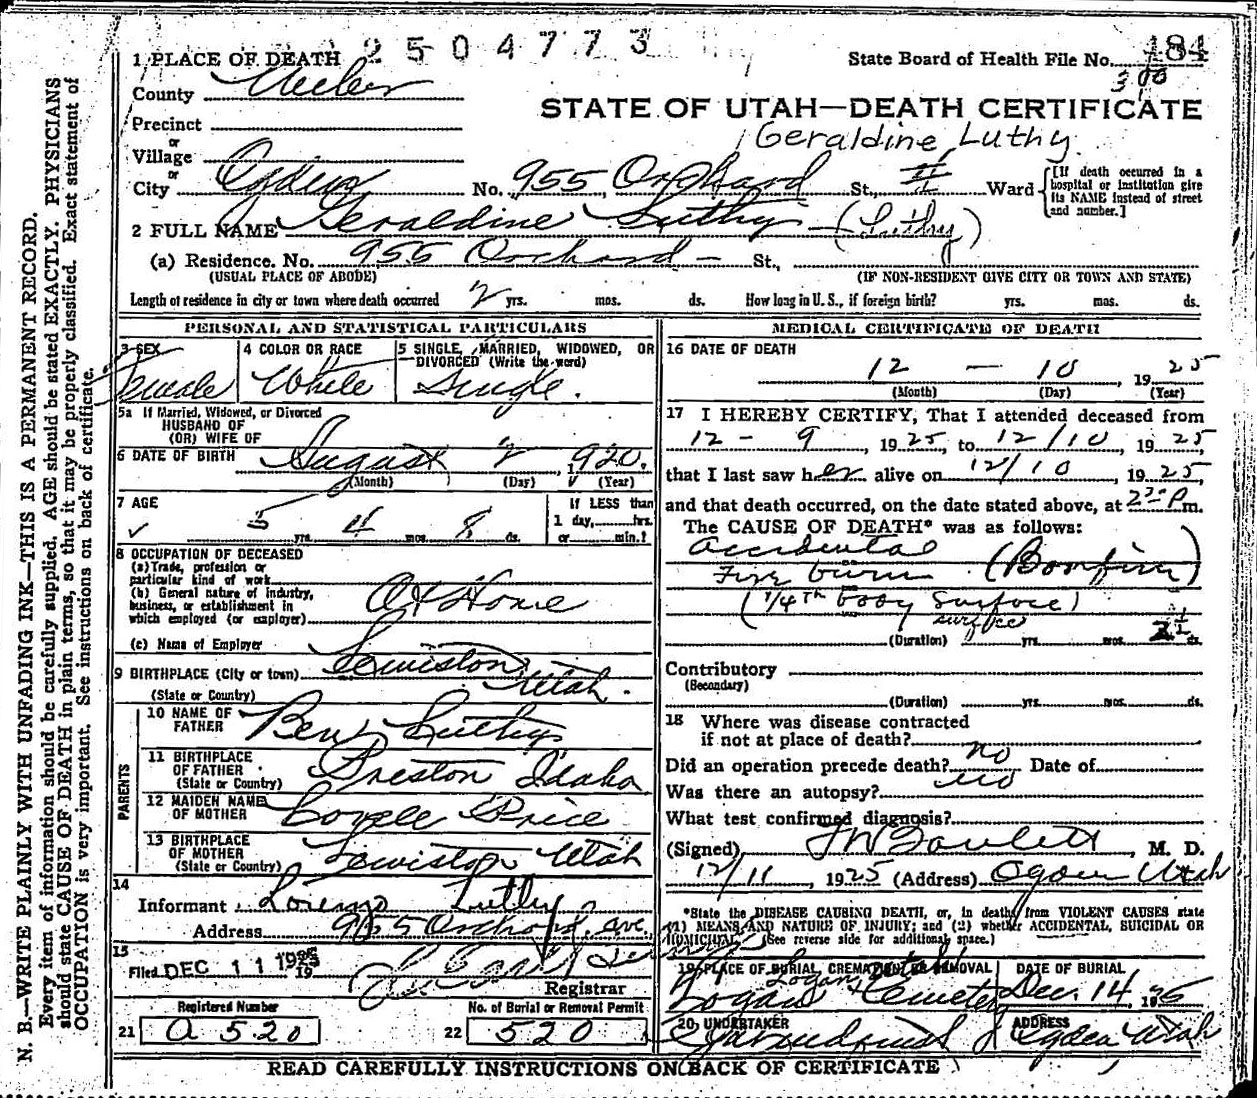 2504773
1 PLACE OF DEATH
State Board of Health File No. 484
300
County Weber
STATE OF UTAH—DEATH CERTIFICATE
Precinct
Geraldine Luthy
or
Village
or
City Ogden No. 955 Orchard St., II Ward
[If death occurred in a hospital or institution give its NAME instead of street and number.]
2 FULL NAME Geraldine Luthy (Luthy)
(a) Residence. No. 955 Orchard — St.,
(USUAL PLACE OF ABODE) (IF NON-RESIDENT GIVE CITY OR TOWN AND STATE)
Length of residence in city or town where death occurred 2 yrs. mos. ds. How long in U. S., if foreign birth? yrs. mos. ds.
PERSONAL AND STATISTICAL PARTICULARS
3 SEX
Female
4 COLOR OR RACE
White
5 SINGLE, MARRIED, WIDOWED, OR
DIVORCED (Write the word)
Single.
5a If Married, Widowed, or Divorced
HUSBAND OF
(OR) WIFE OF
6 DATE OF BIRTH August 2, 1920.
(Month) (Day) (Year)
7 AGE
5 yrs. 4 mos. 8 ds.
If LESS than
1 day, hrs.
or min.?
8 OCCUPATION OF DECEASED
(a) Trade, profession or
particular kind of work
(b) General nature of Industry,
business, or establishment in
which employed (or employer)
At Home
(c) Name of Employer
9 BIRTHPLACE (City or town) Lewiston,
(State or Country) Utah.
PARENTS
10 NAME OF
FATHER Ben Luthy
11 BIRTHPLACE
OF FATHER
(State or Country) Preston Idaho
12 MAIDEN NAME
OF MOTHER Price
13 BIRTHPLACE
OF MOTHER
(State or Country) Lewiston Utah
14
Informant Lorenzo Luthy
Address 955 Orchard, ave.
15
Filed DEC 11 1925 19
Registrar
Registered Number
21 a 520
No. of Burial or Removal Permit
22 520
MEDICAL CERTIFICATE OF DEATH
16 DATE OF DEATH
12 — 10, 1925
(Month) (Day) (Year)
17 I HEREBY CERTIFY, That I attended deceased from
12 - 9 1925, to 12/10, 1925,
that I last saw her alive on 12/10, 1925
and that death occurred, on the date stated above, at 2 P m.
The CAUSE OF DEATH* was as follows:
accidental
Fire burn (Bonfire)
(1/4th body surface)
surface
(Duration) yrs. mos. ds.
Contributory
(Secondary)
(Duration) yrs. mos. ds.
18 Where was disease contracted
if not at place of death?
Did an operation precede death? no Date of
Was there an autopsy? no
What test confirmed diagnosis?
(Signed) , M. D.
12/11, 1925 (Address) Ogden Utah
*State the DISEASE CAUSING DEATH, or, in deaths from VIOLENT CAUSES state
(1) MEANS AND NATURE OF INJURY; and (2) whether ACCIDENTAL, SUICIDAL OR
HOMICIDAL. (See reverse side for additional space.)
19 PLACE OF BURIAL, CREMATION OR REMOVAL
Logan Utah
Logan Cemetery
DATE OF BURIAL
Dec. 14,
20 UNDERTAKER
ADDRESS
Ogden Utah
READ CAREFULLY INSTRUCTIONS ON BACK OF CERTIFICATE
N. B.—WRITE PLAINLY WITH UNFADING INK—THIS IS A PERMANENT RECORD.
Every item of information should be carefully supplied. AGE should be stated EXACTLY. PHYSICIANS
should state CAUSE OF DEATH in plain terms, so that it may be properly classified. Exact statement of
OCCUPATION is very important. See instructions on back of certificate.